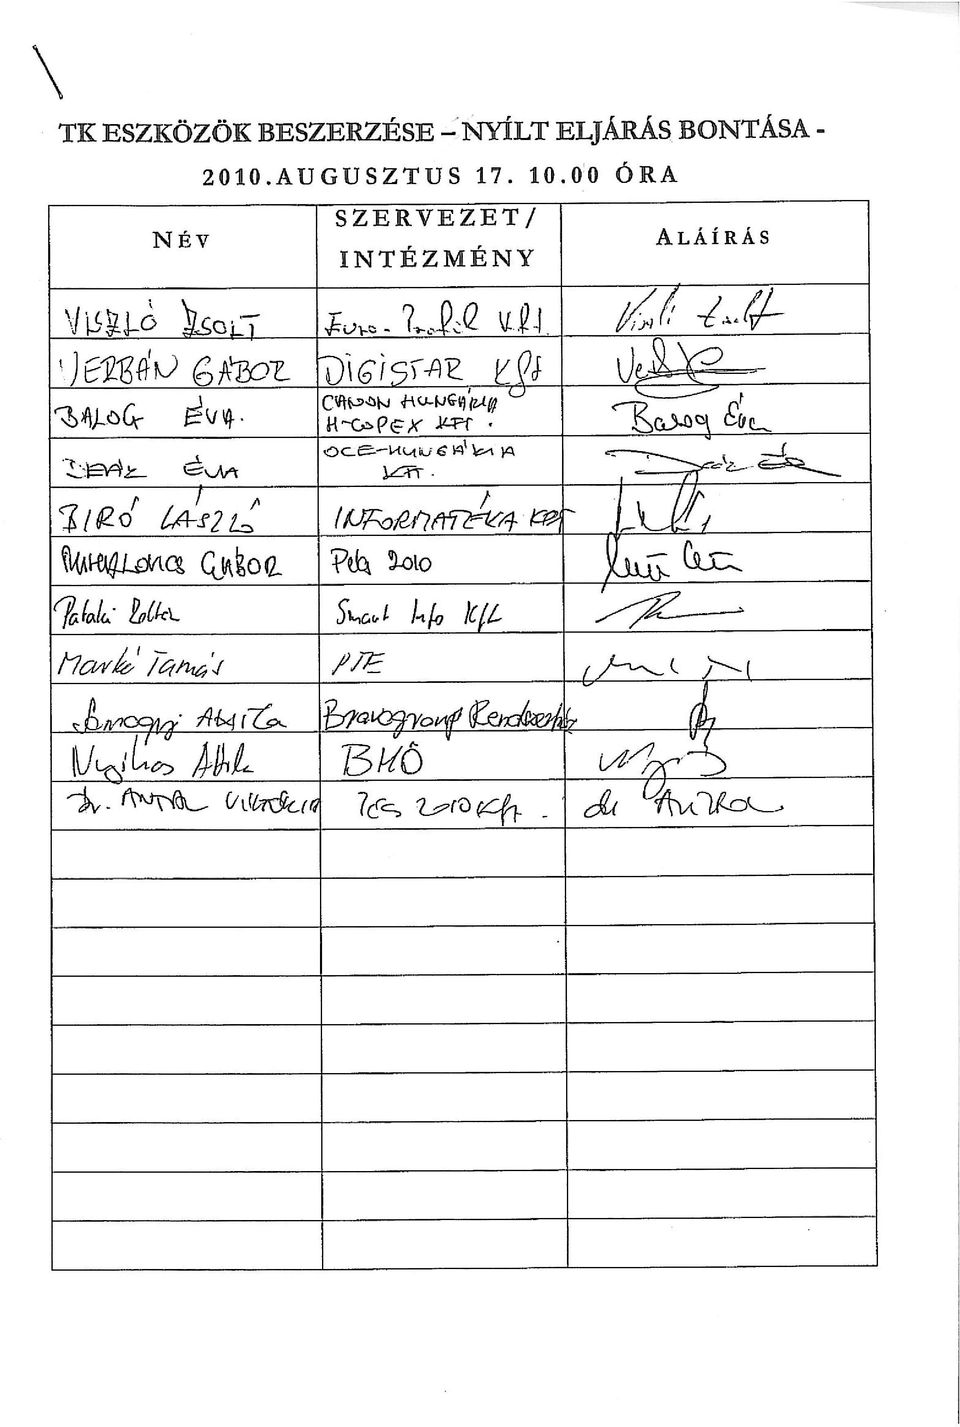 TK ESZKÖZÖK BESZERZÉSE – NYÍLT ELJÁRÁS BONTÁSA -
2010.AUGUSZTUS 17. 10.00 ÓRA
NÉV SZERVEZET/ INTÉZMÉNY ALÁÍRÁS
VISZLÓ ZSOLT Euro-Profil Kft.
VERBÁN GÁBOR DIGISTAR Kft
BALOG ÉVA. CANON HUNGÁRIA Balog Éva
H-COPEX KFT.
DEÁK ÉVA OCE-HUNGÁRIA
KFT.
BIRÓ LÁSZLÓ INFORMATÉKA KFT
GÁBOR 2010
Pataki Zoltán Smart Info Kft
Markó Tamás PTE
Somogyi Attila Bravogroup Rendszerház
Attila BHÖ
Dr. ANTAL VIKTÓRIA 2010 Kft. dr Antal